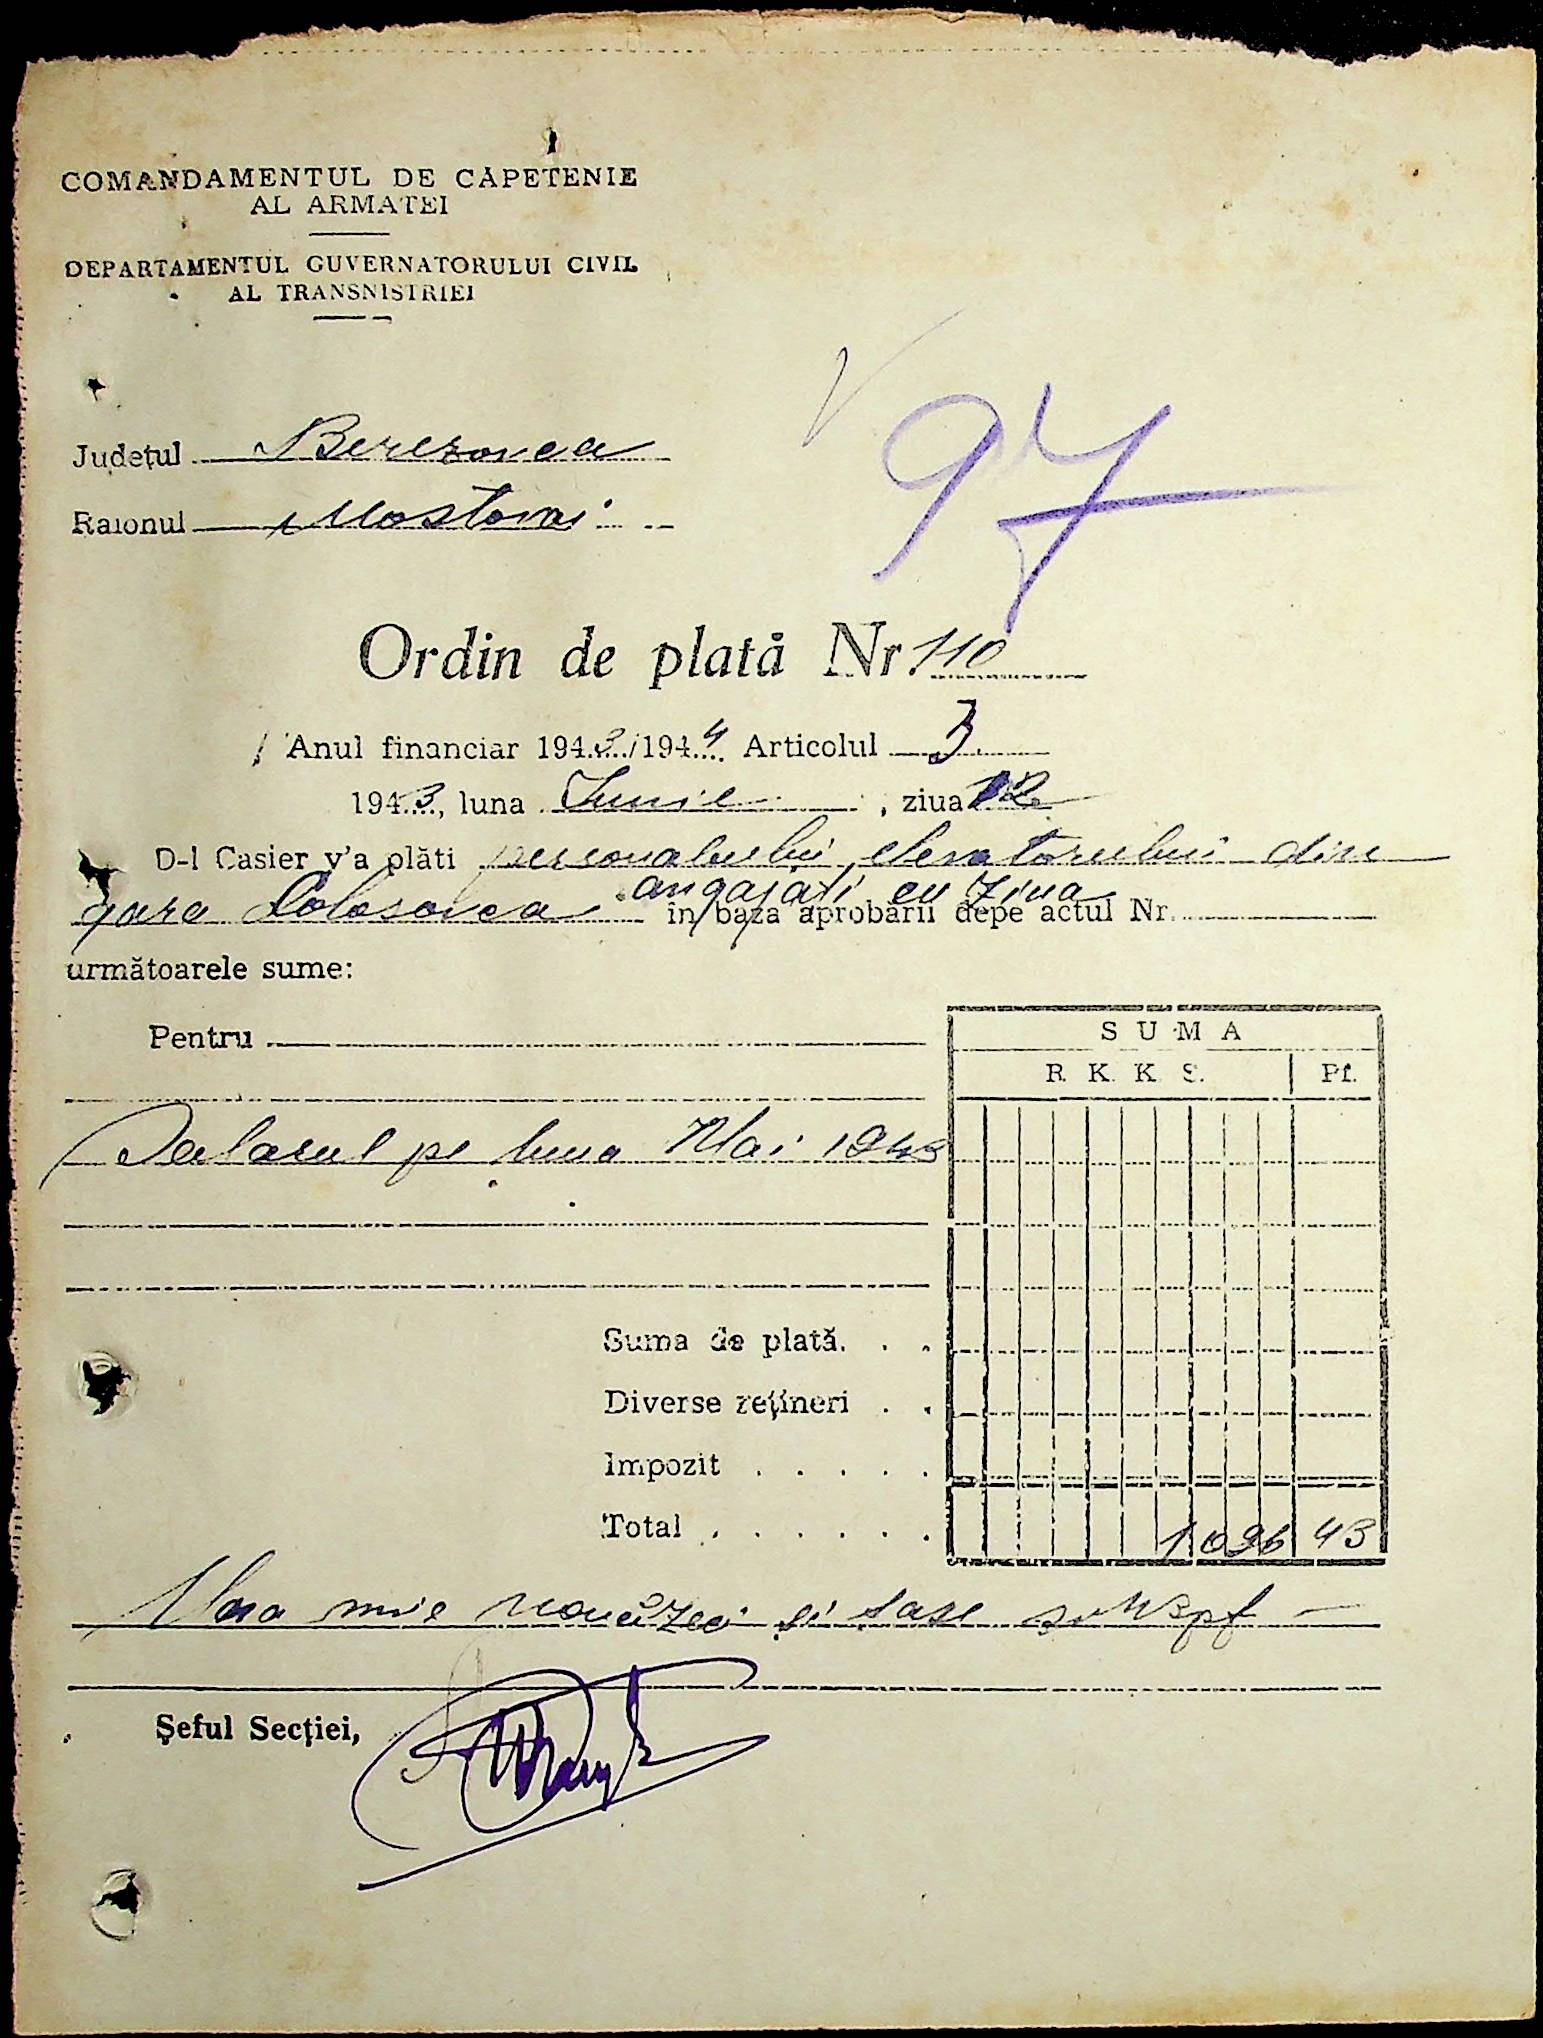 COMANDAMENTUL DE CĂPETENIE
AL ARMATEI
DEPARTAMENTUL GUVERNATORULUI CIVIL
AL TRANSNISTRIEI
97
Județul Berezovca
Raionul Mostovoi
Ordin de plată Nr 110
Anul financiar 1943/1944 Articolul 3.
1943, luna Iunie, ziua 12
D-l Casier v'a plăti personalului elevatorului din
angajati cu ziua
gara Colosovca în baza aprobării depe actul Nr.
următoarele sume:
Pentru
SUMA
R. K. K. S. Pf.
Salarul pe luna Mai 1943
Suma de plată. . .
Diverse rețineri . .
Impozit . . . . .
Total . . . . . . 1096 43
Una mie nouăzeci și sase pf
Șeful Secției,